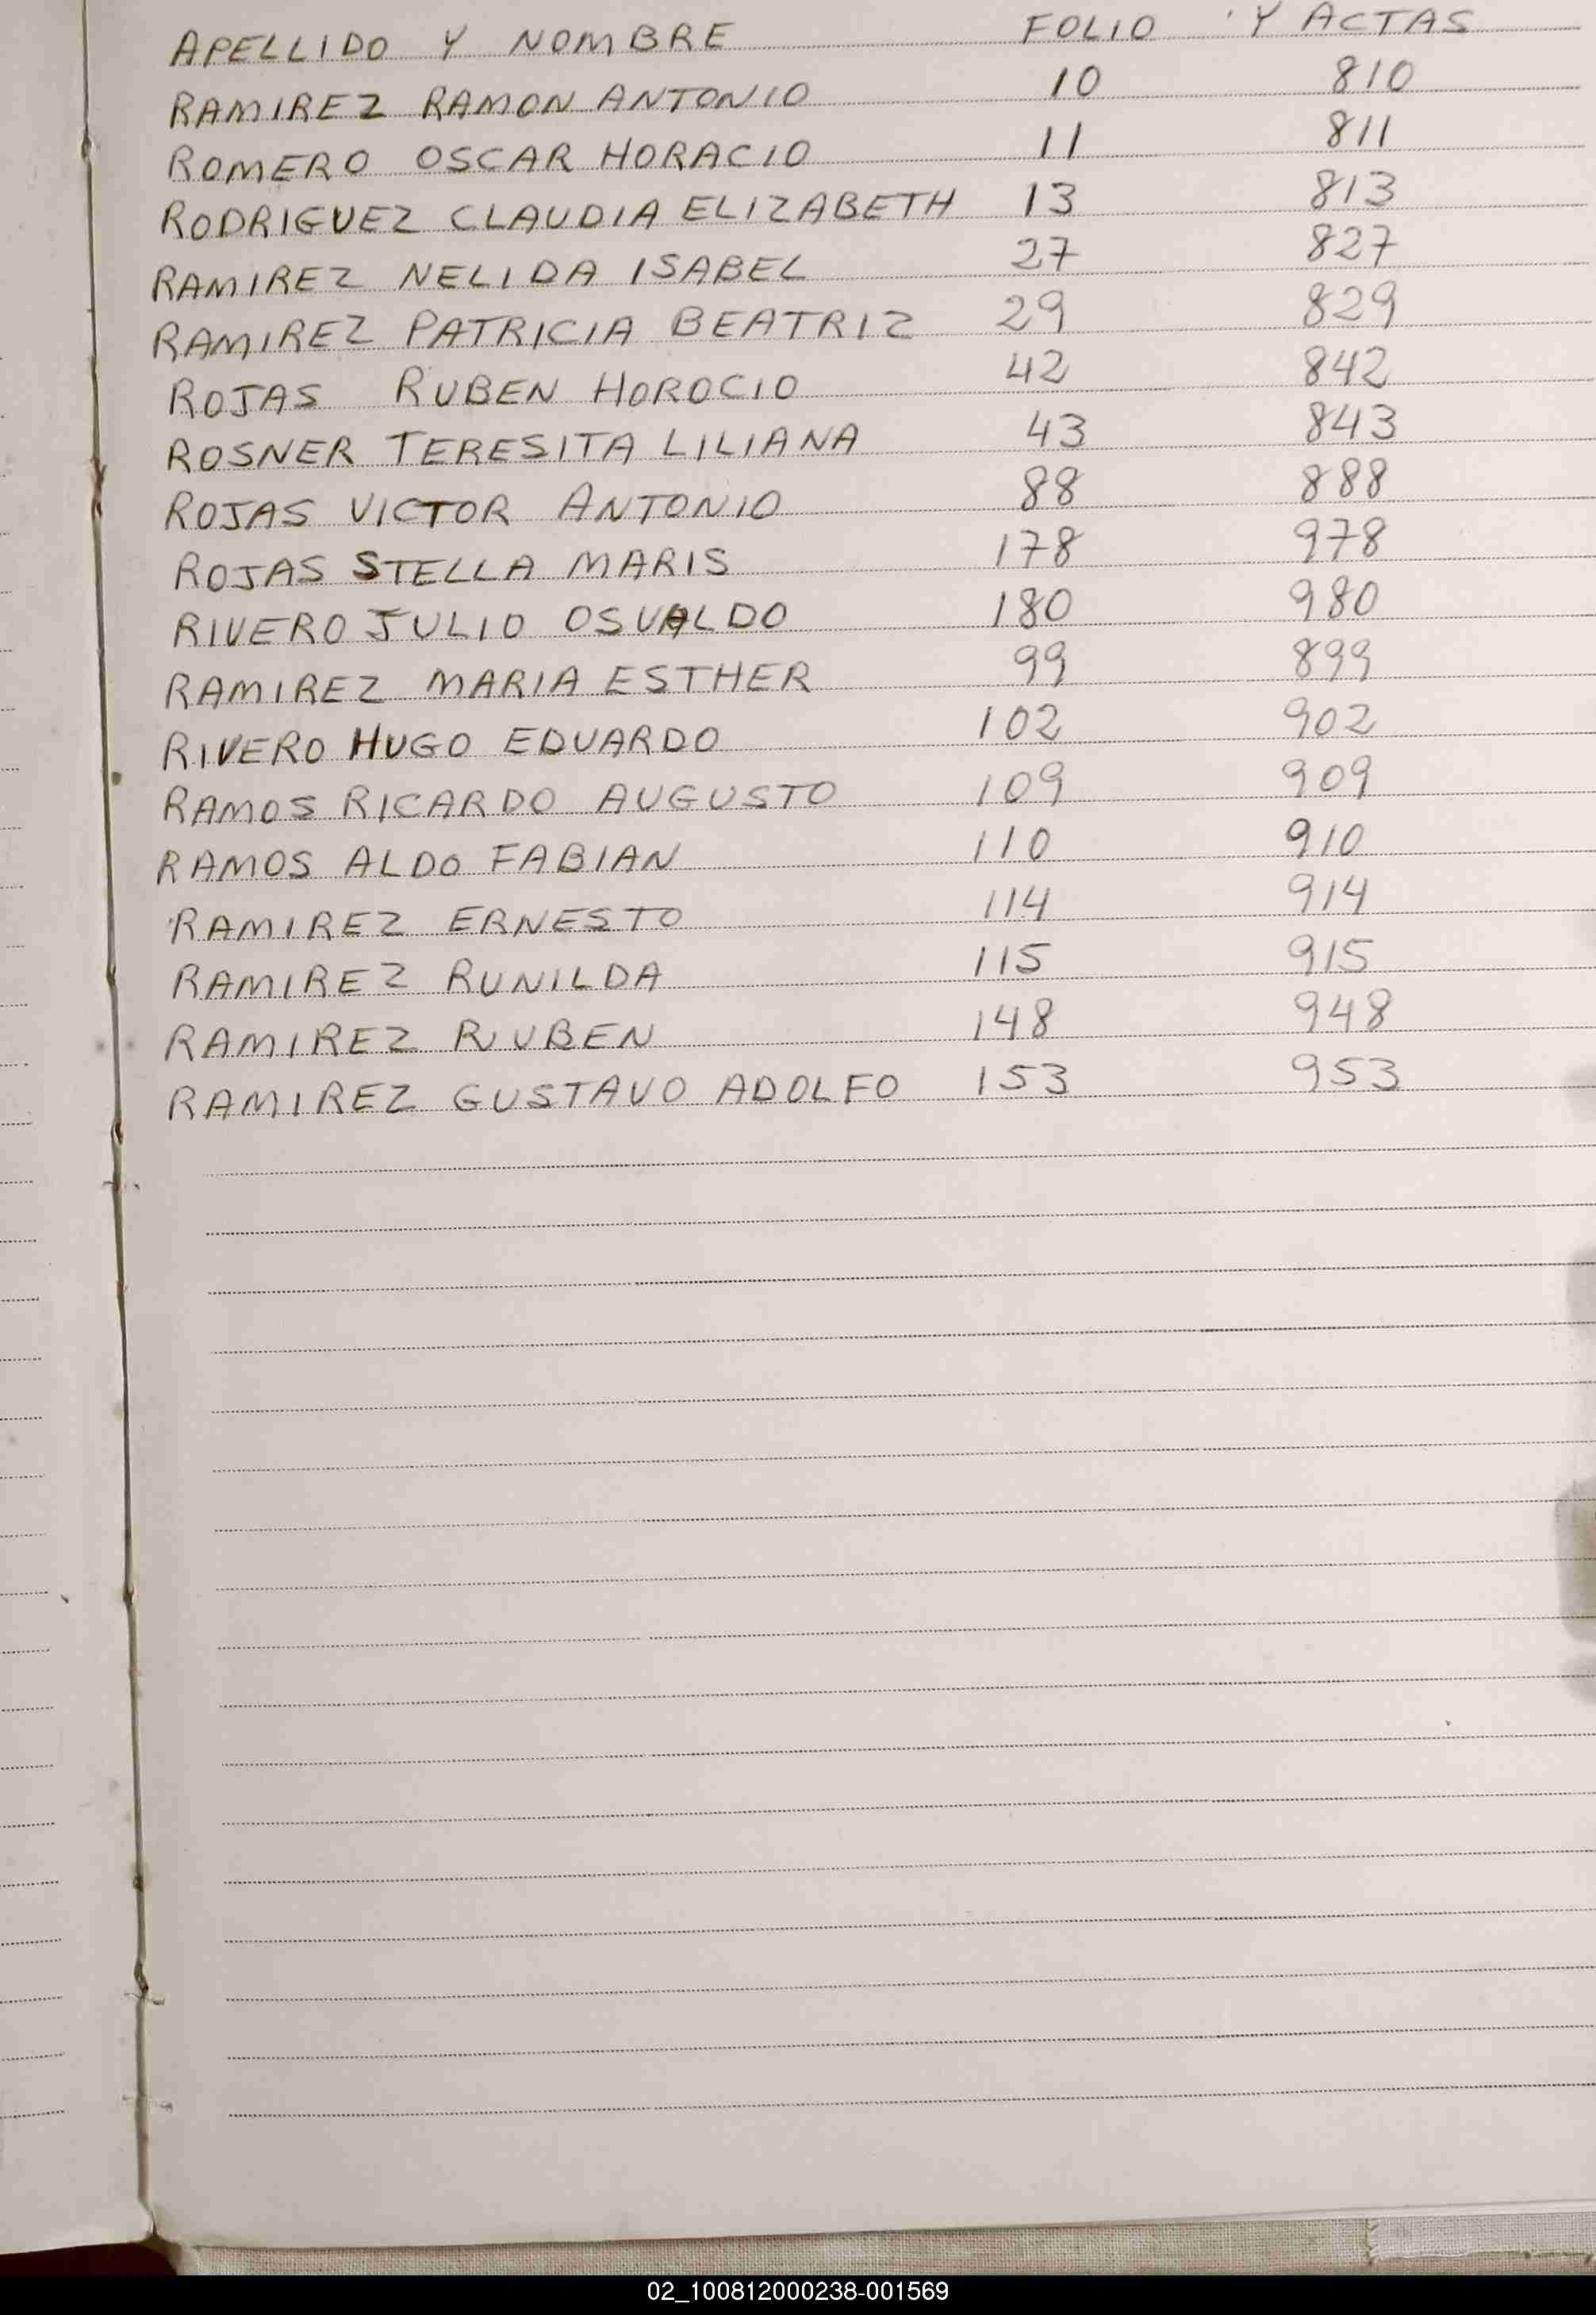 APELLIDO Y NOMBRE FOLIO Y ACTAS
RAMIREZ RAMON ANTONIO 10 810
ROMERO OSCAR HORACIO 11 811
RODRIGUEZ CLAUDIA ELIZABETH 13 813
RAMIREZ NELIDA ISABEL 27 827
RAMIREZ PATRICIA BEATRIZ 29 829
ROJAS RUBEN HOROCIO 42 842
ROSNER TERESITA LILIANA 43 843
ROJAS VICTOR ANTONIO 88 888
ROJAS STELLA MARIS 178 978
RIVERO JULIO OSVALDO 180 980
RAMIREZ MARIA ESTHER 99 899
RIVERO HUGO EDUARDO 102 902
RAMOS RICARDO AUGUSTO 109 909
RAMOS ALDO FABIAN 110 910
RAMIREZ ERNESTO 114 914
RAMIREZ RUNILDA 115 915
RAMIREZ RUBEN 148 948
RAMIREZ GUSTAVO ADOLFO 153 953
02_100812000238-001569